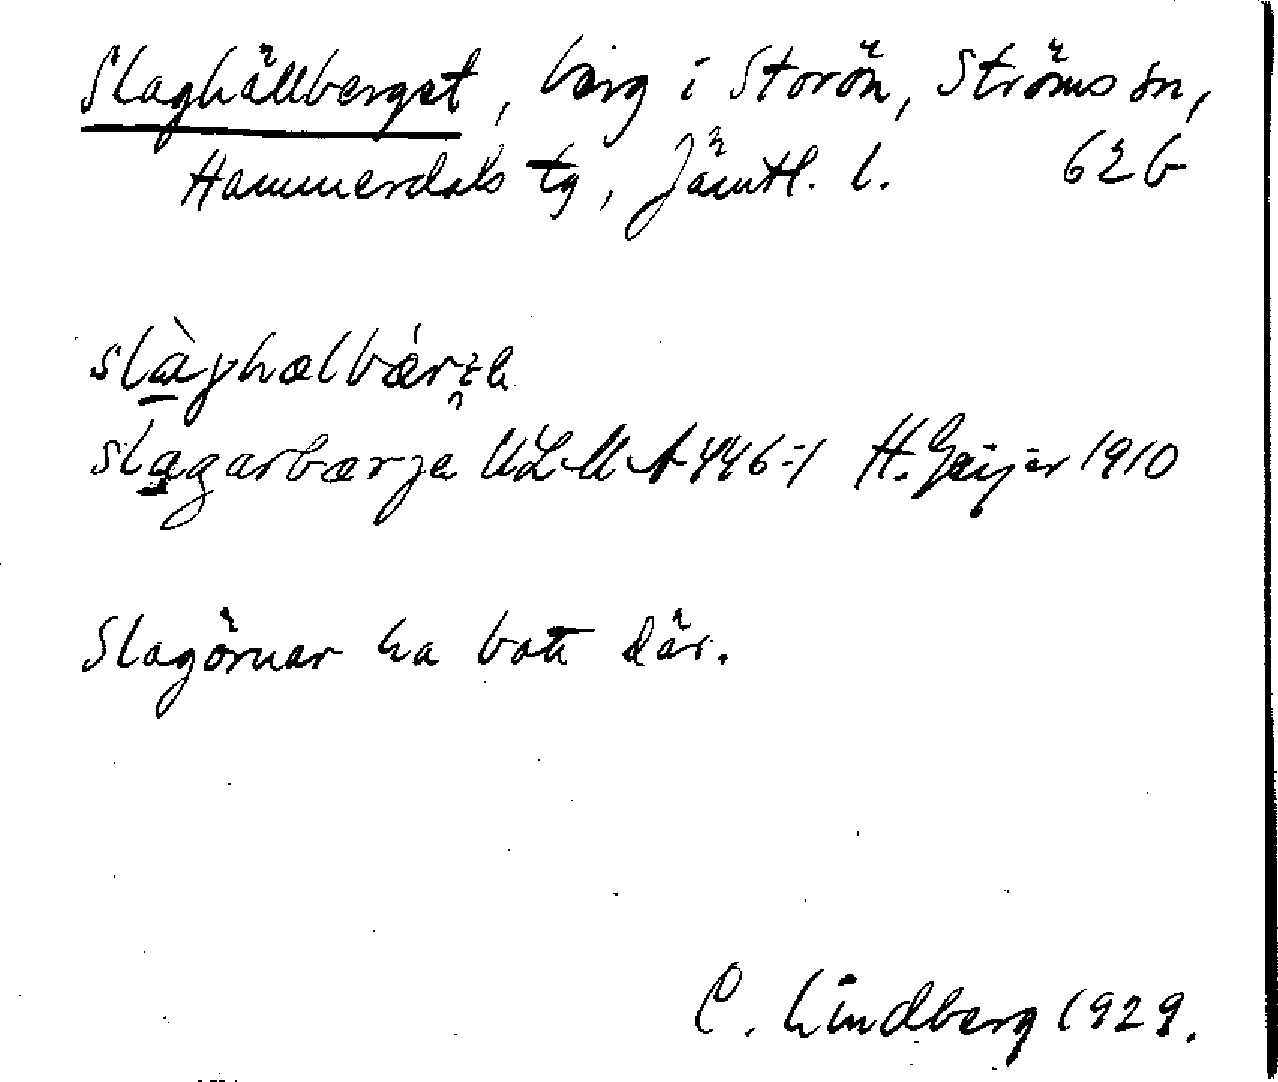 Slaghällberget, berg i Storön, Ströms sn,
Hammerdals tg, Jämtl. l. 62b
slagarbærje ULMA 446:1 H. Geijer 1910
Slagörnar ha bott där.
C. Lindberg 1929.